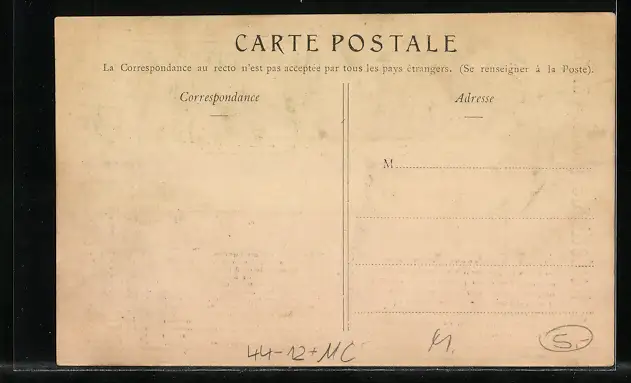 CARTE POSTALE
La Correspondance au recto n'est pas acceptée par tous les pays étrangers. (Se renseigner à la Poste).
Correspondance
Adresse
M
44-12+MC
S.-